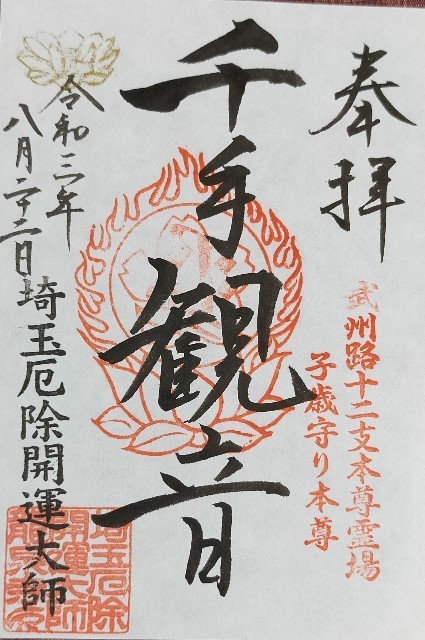 奉拝
武州路十二支本尊霊場
子歳守り本尊
千手観音
令和三年
八月二十二日
埼玉厄除開運大師
埼玉厄除
開運大師